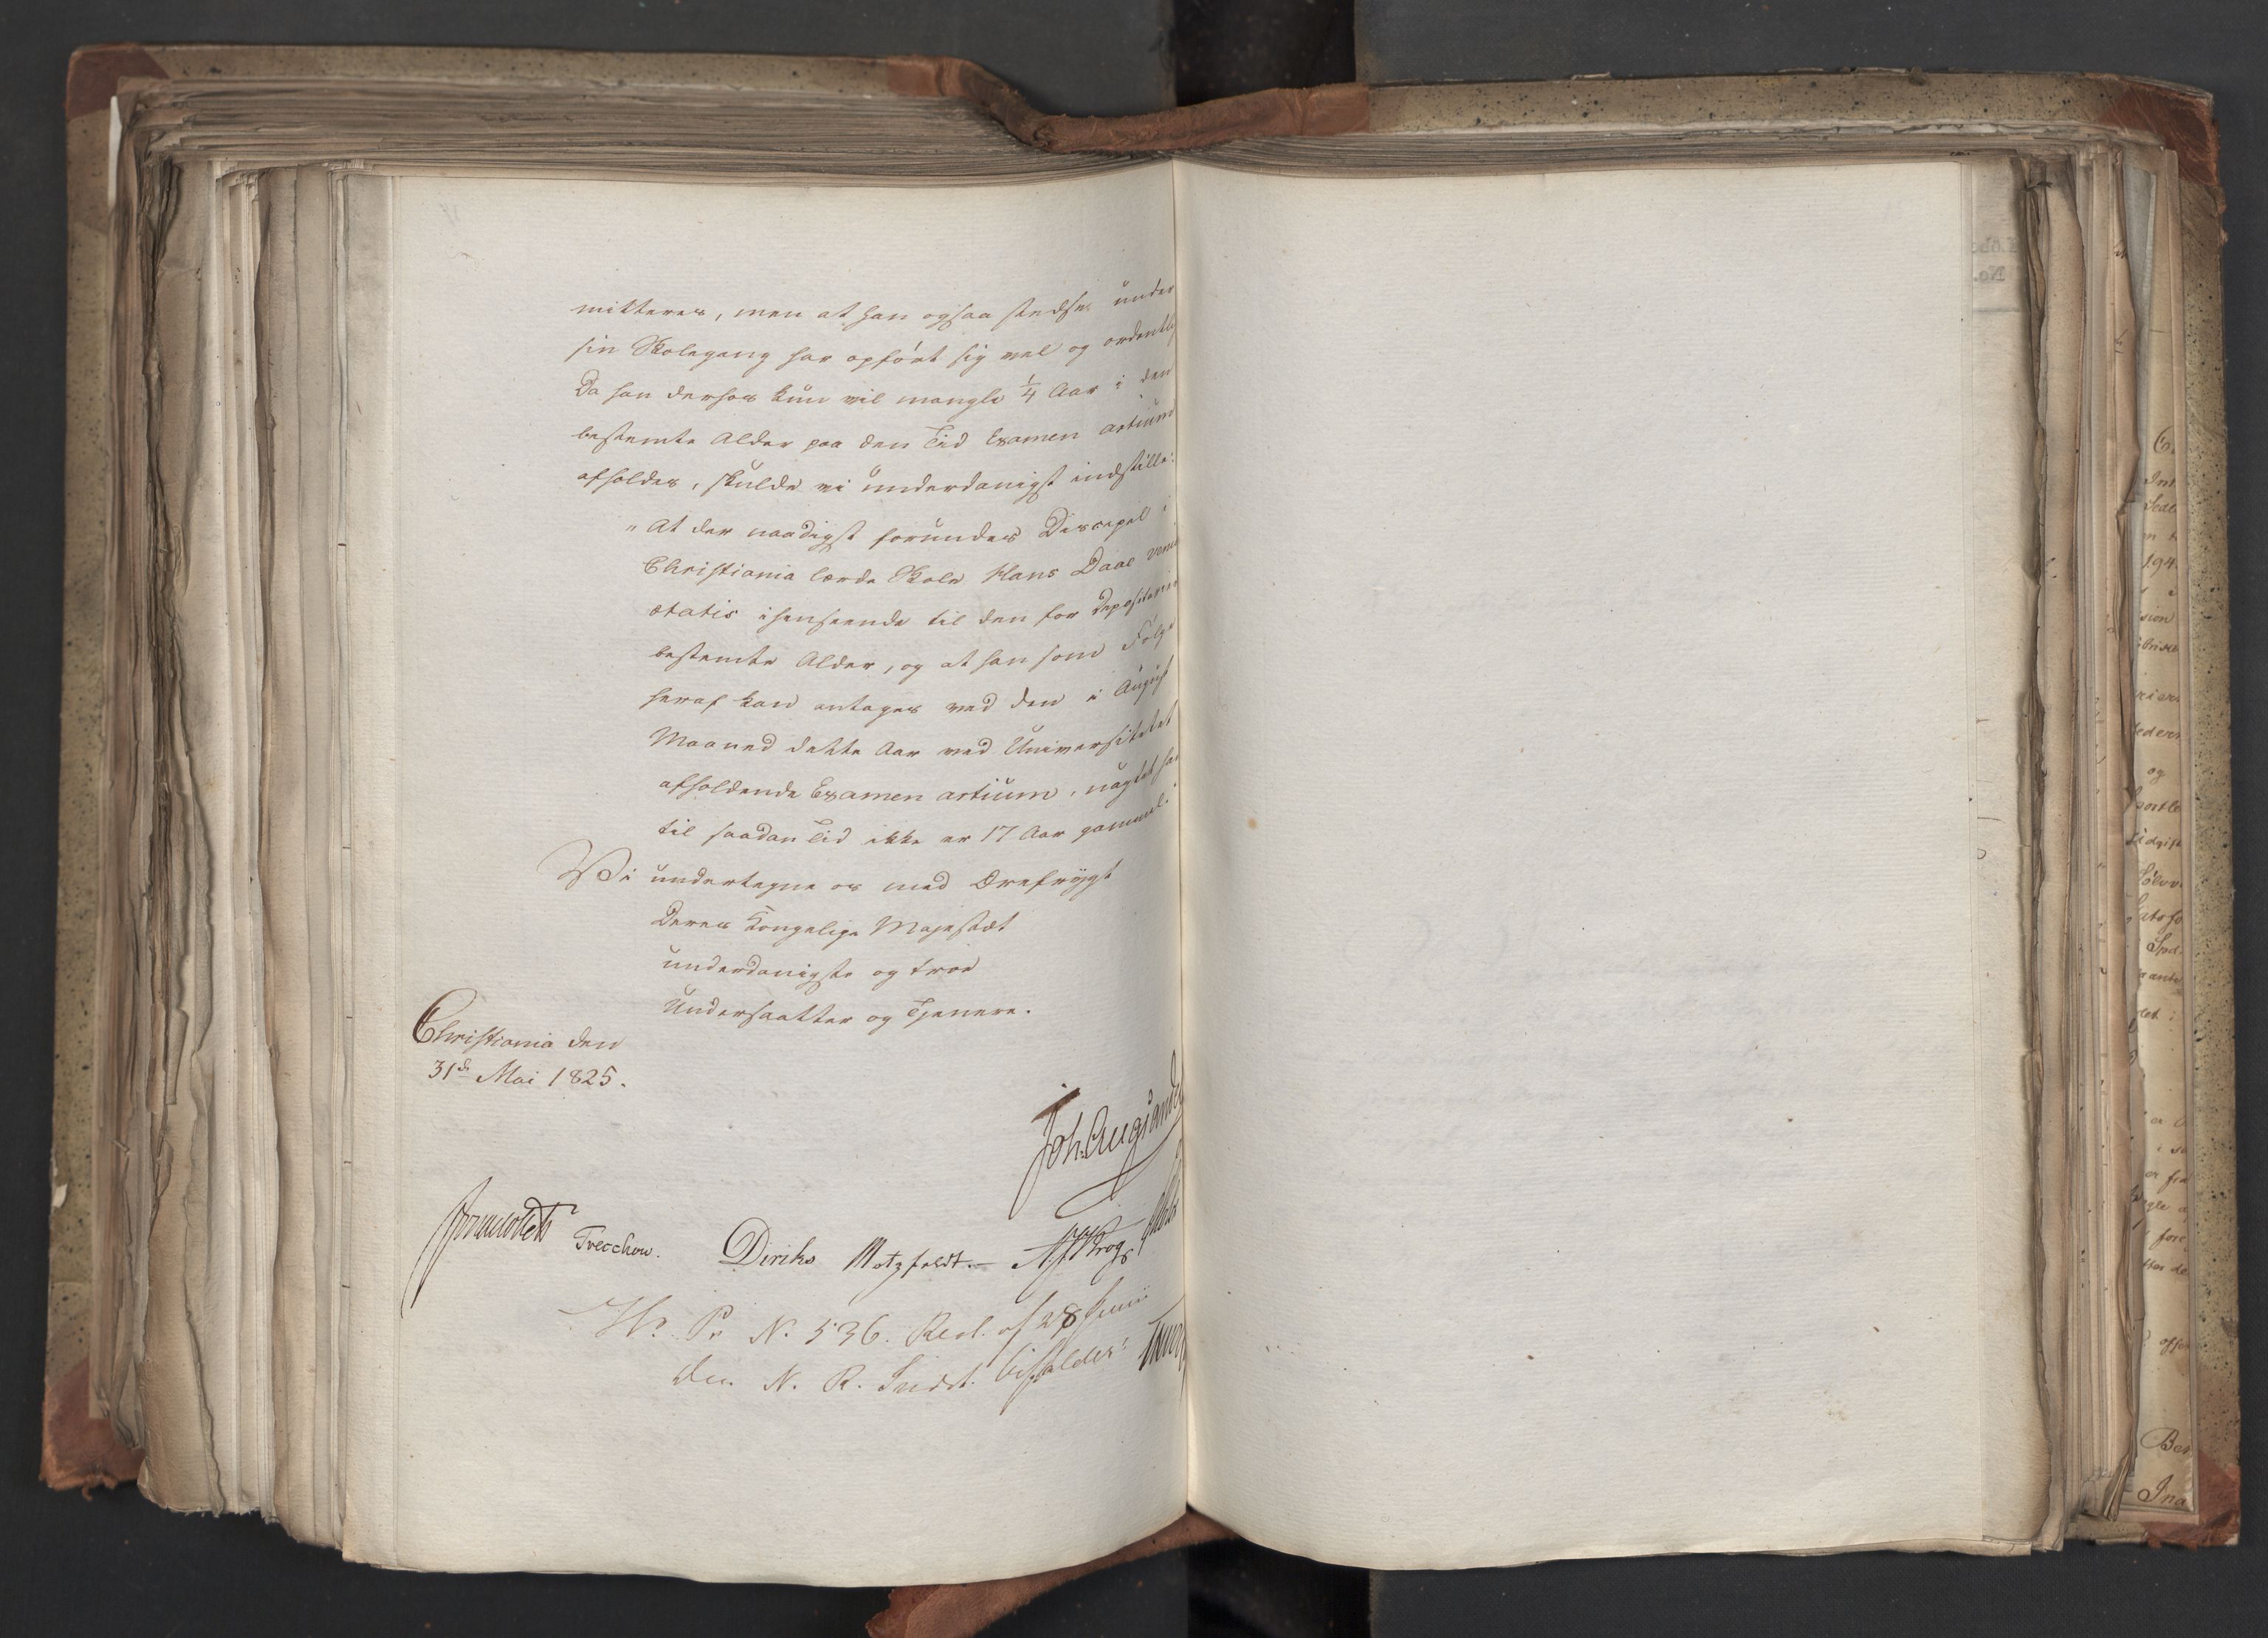 mitteres, men at han ogsaa stedse under
sin Skolegang har opført sig vel og ordentlig
Da han derhos kun vil mangle ¼ Aar i den
bestemte Alder paa den Tid Examen artium
afholdes, skulde vi underdanigst indstille:
"At der naadigst forundes Discipel i
Christiania lærde Skole Hans Daae
ætatis ihenseende til den for
bestemte Alder, og at han som Følge
heraf kan antages ved den i August
Maaned dette Aar ved Universitetet
afholdende Examen artium, uagtet han
til saadan Tid ikke er 17 Aar gammel."
Vi undertegne os med Ærefrygt
Deres Kongelige Majestæt
underdanigste og troe
Undersaatter og Tjenere.
Christiania den
31de Mai 1825.
Joh. Aug Sandels
Sommerhielm Treschow. Diriks Motzfeldt.— Krog
N. 536. Resl. af 28 Junii
den N. R. Indst. bifaldes.